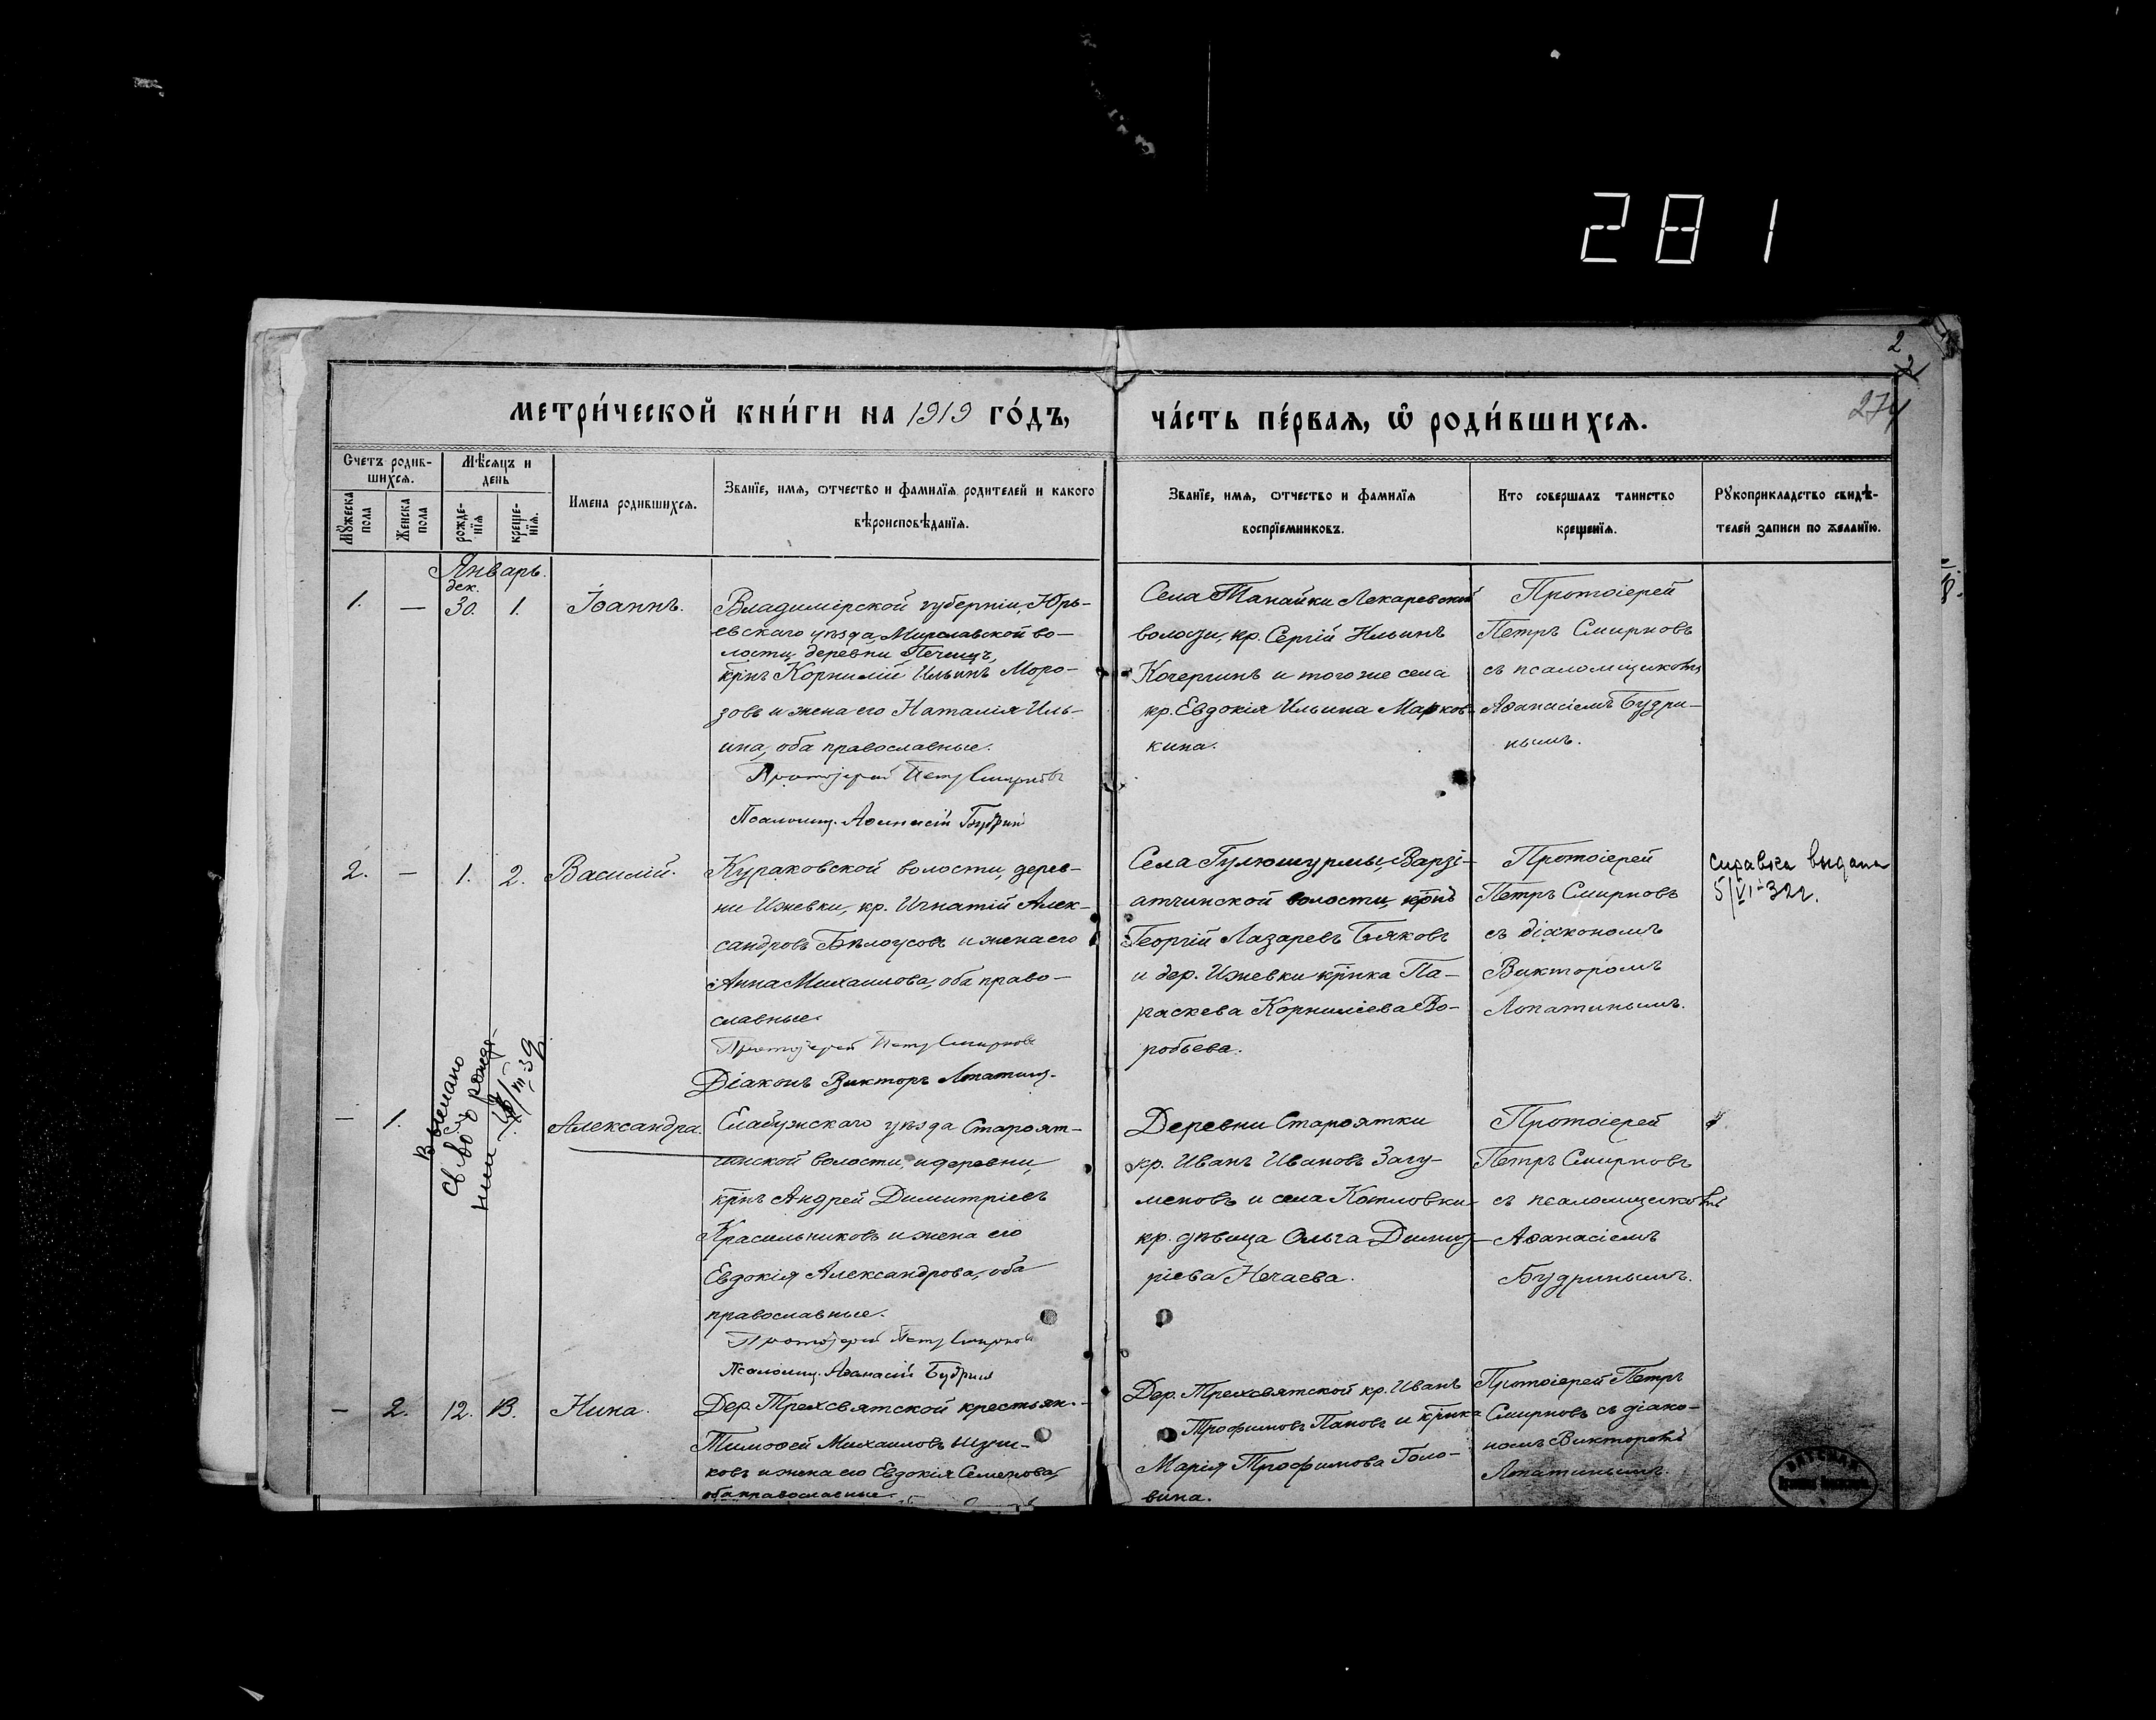 281
2
2
274
МЕТРИ́ЧЕСКОЙ КНИ́ГИ НА 1919 ГО́ДЪ,
ЧА́СТЬ ПЕ́РВАЯ, Ѡ РОДИ́ВШИХСЯ.
Счетъ родив-
шихся.
Мужеска
пола
Женска
пола
Мѣсяцъ и
день
рожде-
нїя
креще-
нїя.
Имена родившихся.
Званїе, имя, отчество и фамилїя родителей и какого
вѣроисповѣданїя.
Званїе, имя, отчество и фамилїя
воспрїемниковъ.
Кто совершалъ таинство
крещенїя.
Рукоприкладство свидѣ-
телей записи по желанїю.
Январь.
дек.
1. — 30. 1. Іоаннъ.
Владимірской губерніи, Юрь-
евскаго уѣзда, Мирславской во-
лости деревни
крнъ Корнилій Ильинъ Моро-
зовъ и жена его Наталія Иль-
ина, оба православные.
Протоіерей Петръ Смирновъ
Псаломщ. Аѳанасій Будрин
Села Танайки Лекаревской
волости, кр. Сергій Ильинъ
Кочергинъ и того же села
кр. Евдокія Ильина Марков-
кина.
Протоіерей
Петръ Смирновъ
съ псаломщикомъ
Аѳанасіемъ Будри-
нымъ.
2. — 1. 2. Василій.
Кураковской волости, дерев-
ни Ижевки, кр. Игнатій Алек-
сандровъ Бѣлоусовъ и жена его
Анна Михаилова, оба право-
славные.
Протоіерей Петръ Смирновъ
Діаконъ Викторъ Лопатинъ.
Села Гулюшурмы, Варзі-
атчинской волости, крнъ
Георгій Лазаревъ Бяковъ
и дер. Ижевки крнка Па-
раскева Корниліева Во-
робьева.
Протоіерей
Петръ Смирновъ
съ діакономъ
Викторомъ
Лопатинымъ.
справка выдана
5/VI-32г.
— 1.
Выслано
св-во о рожде-
нии
VII-39
Александра.
Елабужскаго уѣзда Староят-
чинской волости, и деревни,
крнъ Андрей Димитріевъ
Красильниковъ и жена его
Евдокія Александрова, оба
православные.
Протоіерей Петръ Смирновъ
Псаломщ. Аѳанасій Будрин
Деревни Староятки
кр. Иванъ Ивановъ Загу-
меновъ и села Котловки
кр. дѣвица Ольга Димит-
ріева Нечаева.
Протоіерей
Петръ Смирновъ
съ псаломщикомъ
Аѳанасіемъ
Будринымъ.
— 2. 12. 13. Нина.
Дер. Трехсвятской крестьян.
Тимоѳей Михаиловъ
ковъ и жена его Евдокія Семенова,
оба православные.
Дер. Трехсвятской кр. Иванъ
Трофимовъ Пановъ и крнка
Марія Трофимова Голо-
вина.
Протоіерей Петръ
Смирновъ съ діако-
номъ Викторомъ
Лопатинымъ.